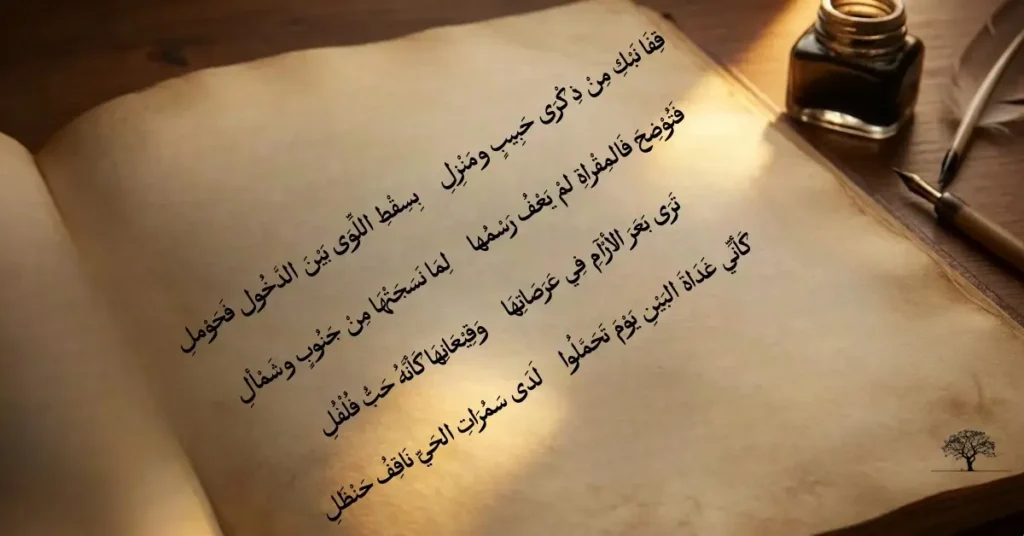 قِفَا نَبْكِ مِنْ ذِكْرَى حَبِيبٍ ومَنْزِلِ بِسِقْطِ اللِّوَى بَيْنَ الدَّخُول فَحَوْملِ
فَتُوْضِحَ فَالمِقْراةِ لمْ يَعْفُ رَسْمُها لِمَا نَسَجَتْهَا مِنْ جَنُوبٍ وشَمْألِ
تَرَى بَعَرَ الأرْآمِ فِي عَرَصَاتِهَا وَقِيْعَانِهَا كَأنَّهُ حَبُّ فُلْفُلِ
كَأنِّي غَدَاةَ البَيْنِ يَوْمَ تَحَمَّلُوا لَدَى سَمُرَاتِ الحَيِّ نَاقِفُ حَنْظَلِ